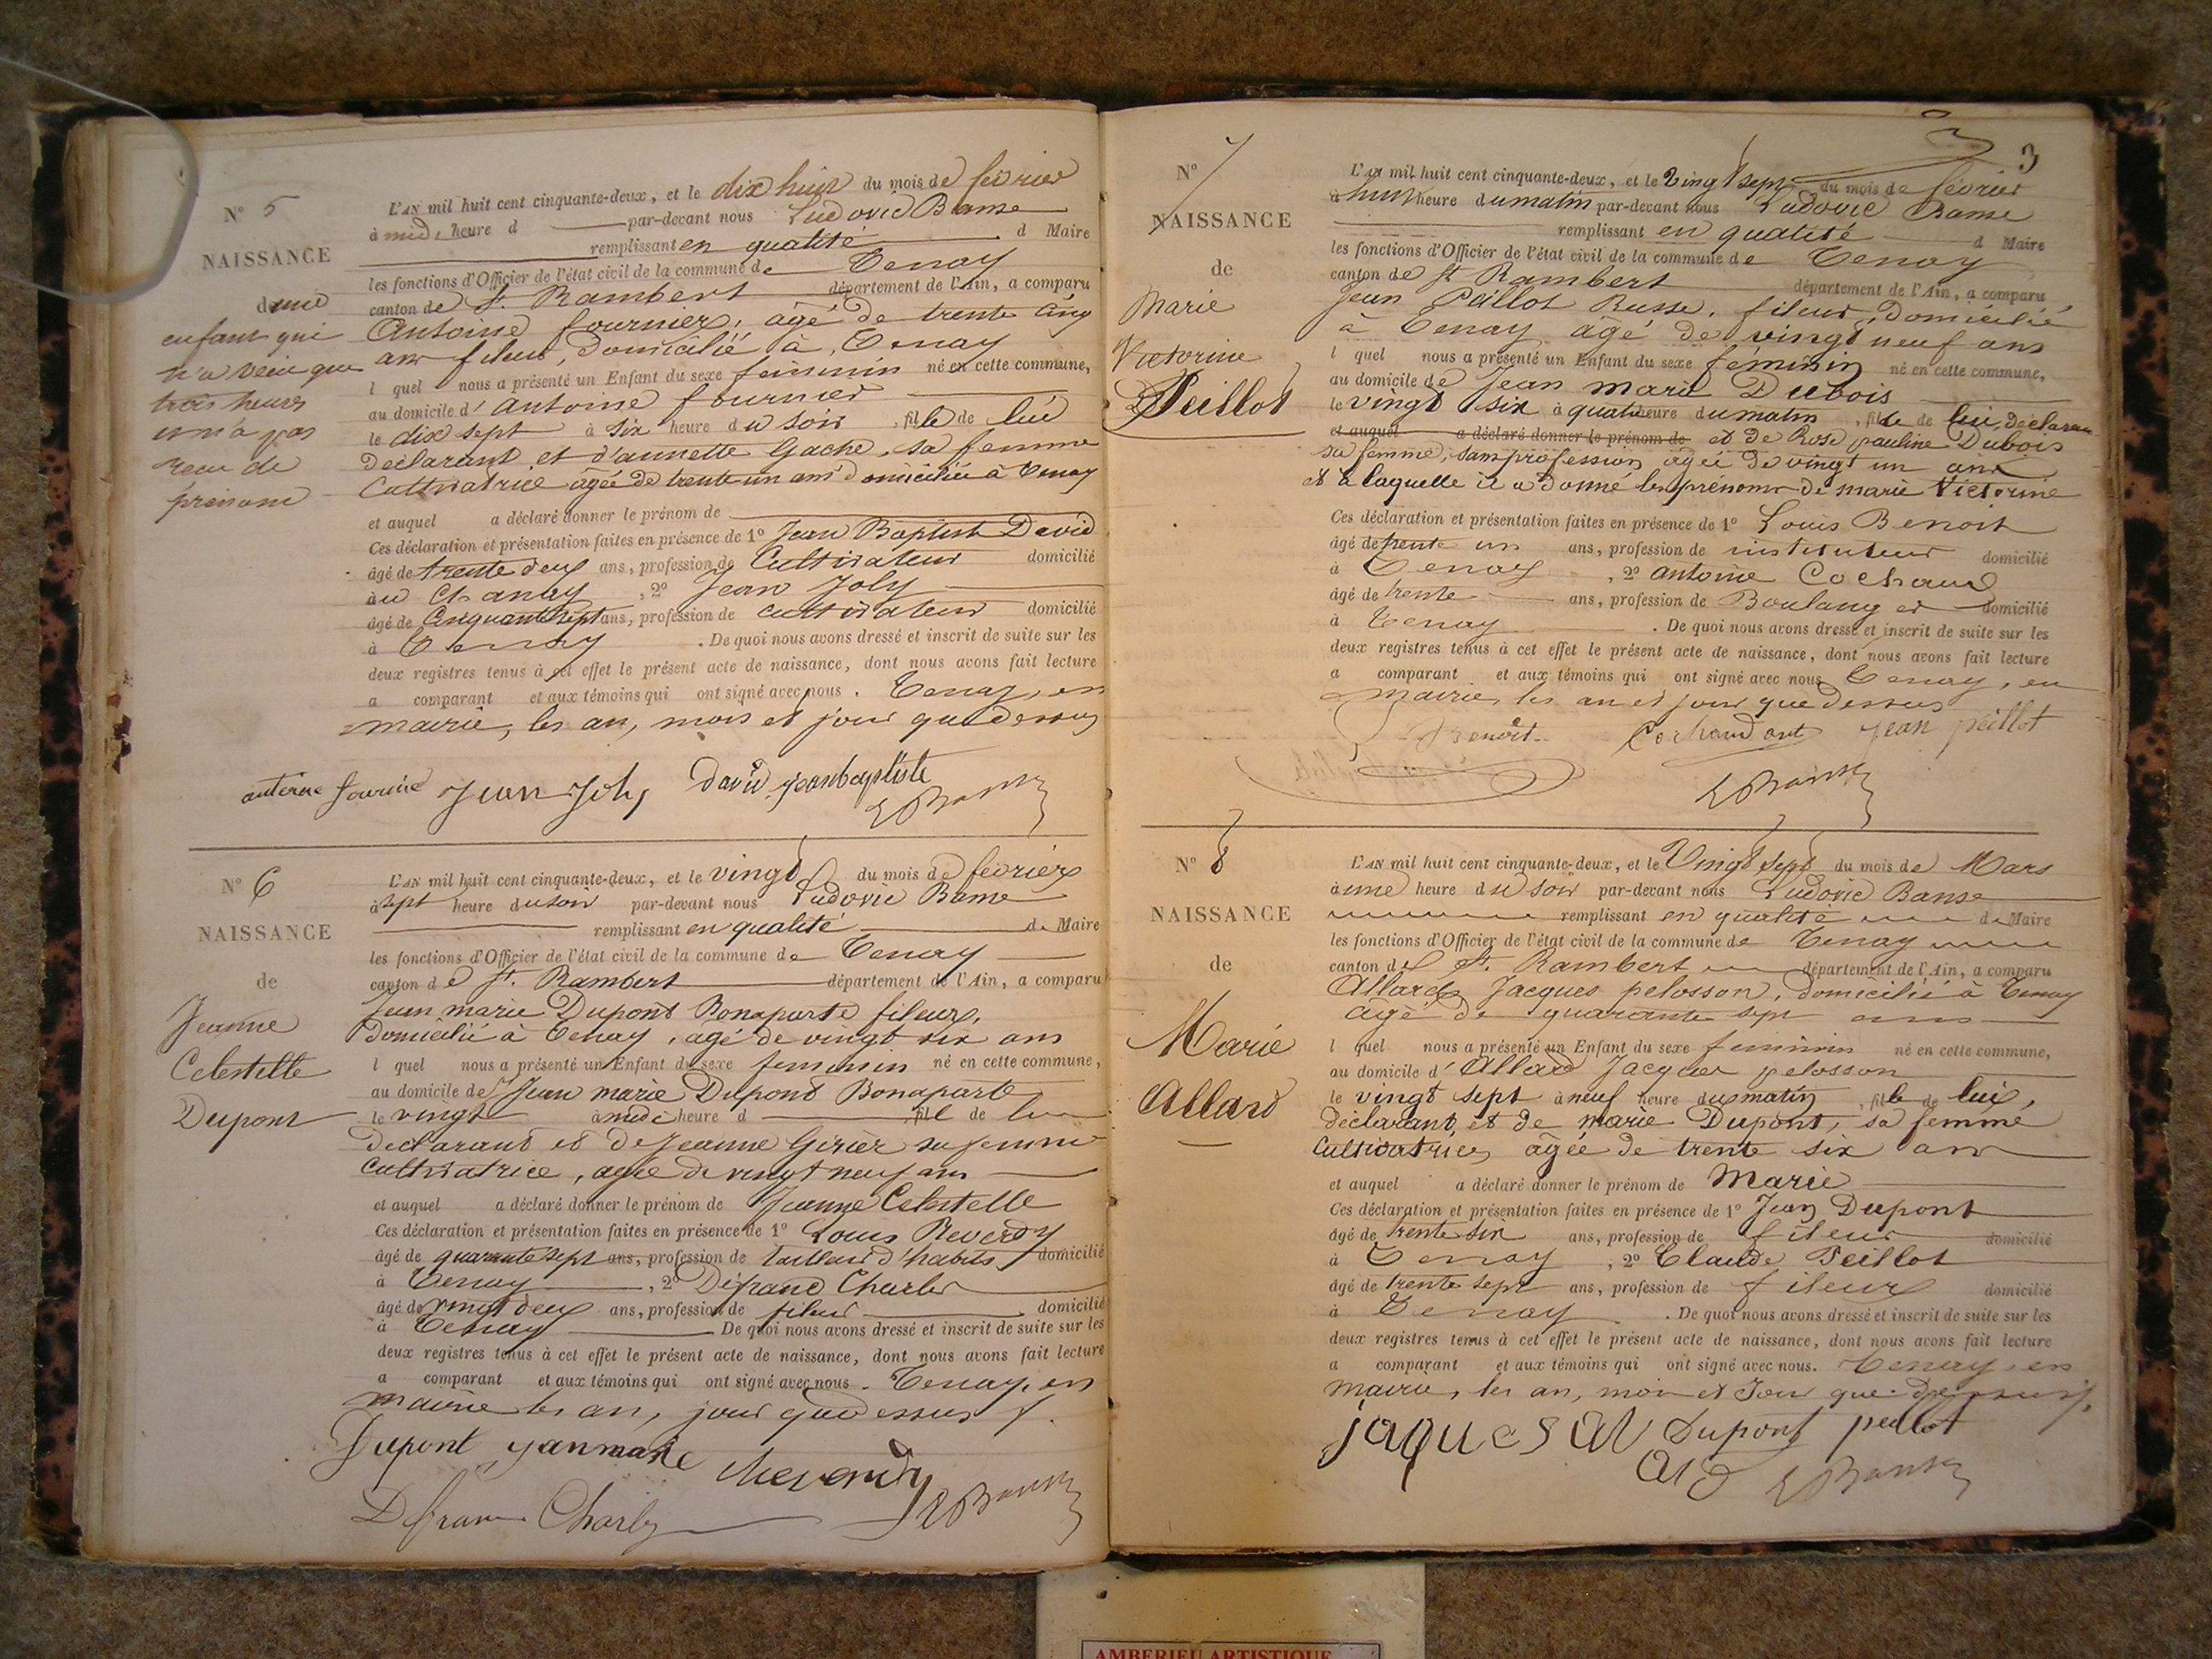 Nº 5
NAISSANCE
d'une
enfant qui
n'a vécu que
trois heures
et n'a pas
reçu de
prénom
L'AN mil huit cent cinquante-deux, et le dix huit du mois de février
à midi heure d par-devant nous Ludovic Banse
remplissant en qualité d Maire
les fonctions d'Officier de l'état civil de la commune de Tenay
canton de St. Rambert département de l'Ain, a comparu
Antoine fournier, âgé de trente cinq
ans fileur, domicilié à Tenay
l quel nous a présenté un Enfant du sexe feminin né en cette commune,
au domicile d' antoine fournier
le dix sept à six heure du soir, fille de lui
déclarant et d'annette Gache, sa femme
Cultivatrice âgée de trente un ans domiciliée à Tenay
et auquel a déclaré donner le prénom de
Ces déclaration et présentation faites en présence de 1º Jean Baptiste David
âgé de trente deux ans, profession de Cultivateur domicilié
au Chanay, 2º Jean Joly
âgé de Cinquante sept ans, profession de cultivateur domicilié
à Tenay . De quoi nous avons dressé et inscrit de suite sur les
deux registres tenus à cet effet le présent acte de naissance, dont nous avons fait lecture
a comparant et aux témoins qui ont signé avec nous. Tenay, en
mairie, les an, mois et jour que dessus
antoine fournié Jean Joly David jeanbaptiste
LBanse
Nº 6
NAISSANCE
de
Jeanne
Celestelle
Dupont
L'AN mil huit cent cinquante-deux, et le vingt du mois de février
à sept heure du soir par-devant nous Ludovic Banse
remplissant en qualité de Maire
les fonctions d'Officier de l'état civil de la commune de Tenay
canton de St. Rambert département de l'Ain, a comparu
Jean marie Dupont Bonaparte fileur,
Domicilié à Tenay, âgé de vingt six ans
l quel nous a présenté un Enfant du sexe feminin né en cette commune,
au domicile de Jean marie Dupont Bonaparte
le vingt à midi heure d fille de lui
déclarant et de Jeanne Girier sa femme
Cultivatrice, agée de vingt neuf ans
et auquel a déclaré donner le prénom de Jeanne Celestelle
Ces déclaration et présentation faites en présence de 1º Louis Reverdy
âgé de quarante sept ans, profession de tailleur d'habits domicilié
à Tenay, 2º Défranc Charles
âgé de vingt deux ans, profession de fileur domicilié
à Tenay De quoi nous avons dressé et inscrit de suite sur les
deux registres tenus à cet effet le présent acte de naissance, dont nous avons fait lecture
a comparant et aux témoins qui ont signé avec nous. Tenay, en
mairie les an, jour que dessus
Dupont janmarie
LBanse
3
Nº 7
NAISSANCE
de
Marie
Victorine
Peillot
L'AN mil huit cent cinquante-deux, et le Vingt sept du mois de février
à huit heure du matin par-devant nous Ludovic Banse
remplissant en qualité d Maire
les fonctions d'Officier de l'état civil de la commune de Tenay
canton de St Rambert département de l'Ain, a comparu
Jean Peillot Russe, fileur, domicilié
à Tenay âgé de vingt neuf ans
l quel nous a présenté un Enfant du sexe féminin né en cette commune,
au domicile de Jean marie Dubois
le vingt six à quatre heure du matin, fille de lui, déclarant
et auquel a déclaré donner le prénom de et de Rose pauline Dubois
sa femme, sans profession âgée de vingt un ans
et à laquelle il a donné les prénoms de marie Victorine
Ces déclaration et présentation faites en présence de 1º Louis Benoit
âgé de trente un ans, profession de instituteur domicilié
à Tenay, 2º antoine Cochaud
âgé de trente ans, profession de Boulanger domicilié
à Tenay . De quoi nous avons dressé et inscrit de suite sur les
deux registres tenus à cet effet le présent acte de naissance, dont nous avons fait lecture
a comparant et aux témoins qui ont signé avec nous Tenay, en
mairie, les an et jour que dessus
Benoit Cochaud ant Jean peillot
LBanse
Nº 8
NAISSANCE
de
Marie
Allard
L'AN mil huit cent cinquante-deux, et le Vingt sept du mois de Mars
à une heure du soir par-devant nous Ludovic Banse
remplissant en qualité de Maire
les fonctions d'Officier de l'état civil de la commune de Tenay
canton de St. Rambert département de l'Ain, a comparu
Allard Jacques pelosson, domicilié à Tenay
âgé de quarante sept ans
l quel nous a présenté un Enfant du sexe feminin né en cette commune,
au domicile d' Allard Jacques pelosson
le vingt sept à neuf heure du matin, fille de lui,
déclarant, et de marie Dupont, sa femme
Cultivatrice, âgée de trente six ans
et auquel a déclaré donner le prénom de Marie
Ces déclaration et présentation faites en présence de 1º Jean Dupont
âgé de trente six ans, profession de fileur domicilié
à Tenay, 2º Claude Peillot
âgé de trente sept ans, profession de fileur domicilié
à Tenay . De quoi nous avons dressé et inscrit de suite sur les
deux registres tenus à cet effet le présent acte de naissance, dont nous avons fait lecture
a comparant et aux témoins qui ont signé avec nous. Tenay, en
mairie, les an, mois et Jour que dessus.
jaques al Dupont peillot
ard LBanse
AMBERIEU ARTISTIQUE